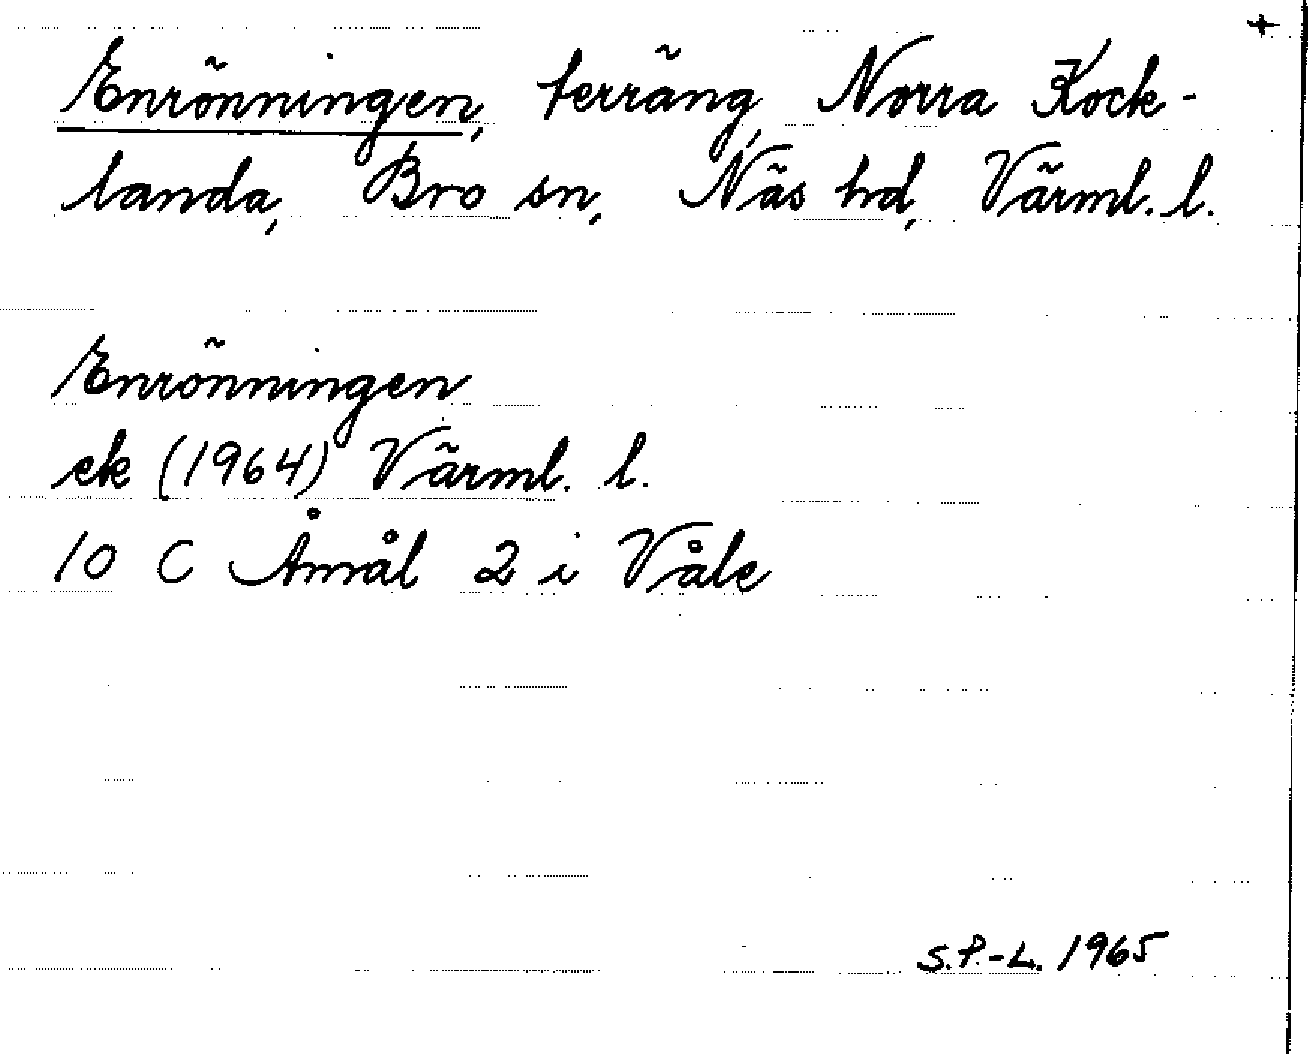 +
Enrönningen, terräng, Norra Kock-
landa, Bro sn, Näs hd, Värml. l.
Enrönningen
ek (1964) Värml. l.
10 C Åmål 2 i Våle
S.P.-L. 1965